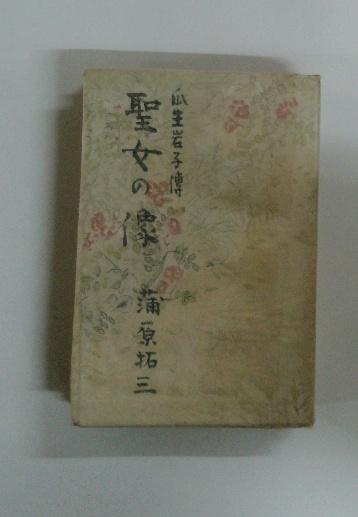 瓜生岩子傳
聖女の像
蒲原拓三